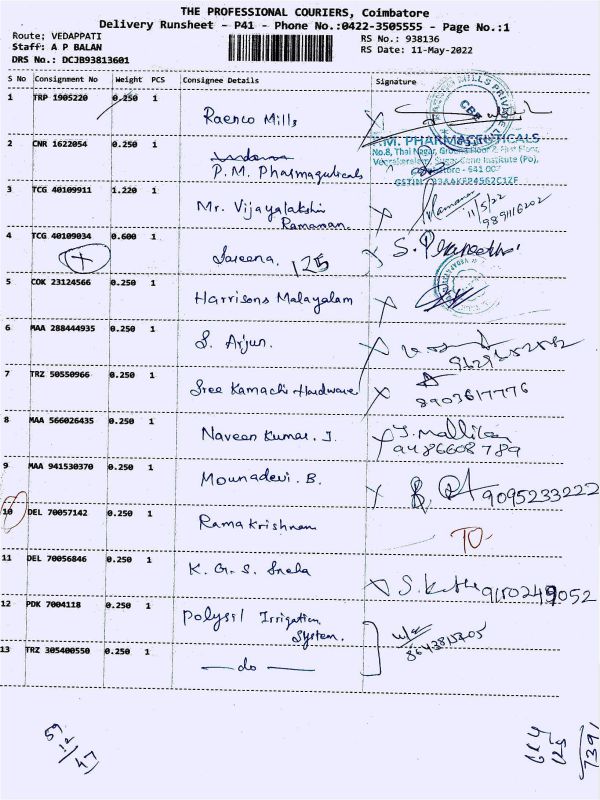 THE PROFESSIONAL COURIERS, Coimbatore
Delivery Runsheet - P41 - Phone No.:0422-3505555 - Page No.:1
Route; VEDAPPATI
Staff: A P BALAN
DRS No.: DCJB93813601
RS No.: 938136
RS Date: 11-May-2022
S No Consignment No Weight PCS Consignee Details Signature
1 TRP 1905220 0.250 1 Raenco Mills
2 CNR 1622054 0.250 1
P.M. Pharmaguticals
P.M. PHARMACEUTICALS
No.8, Thai Nagar, Ground Floor
Veerakeralam, Sugar Cane Institute (Po),
3 TCG 40109911 1.220 1 Mr. Vijayalakshi
Ramanan.
Ramanan
11/5/22
4 TCG 40109034 0.600 1 Sareena. 125
5 COK 23124566 0.250 1 Harrisons Malayalam
6 MAA 288444935 0.250 1 S. Arjun.
7 TRZ 50550966 0.250 1 Sree Kamachi Hardware
8903617776
8 MAA 566026435 0.250 1 Naveen Kumar. J.
9486608789
9 MAA 941530370 0.250 1 Mounadevi. B.
9095233222
10 DEL 70057142 0.250 1 Ramakrishnan
TO
11 DEL 70056846 0.250 1 K. G. S. Snela
9150249052
12 PDK 7004118 0.250 1 Polysil Irrigation
System.
13 TRZ 305400550 0.250 1 — do —
59
12
47
7391